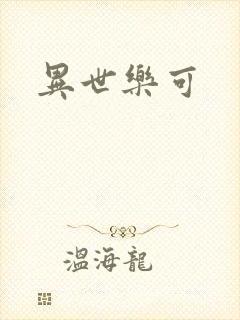 異世樂可
溫海龍